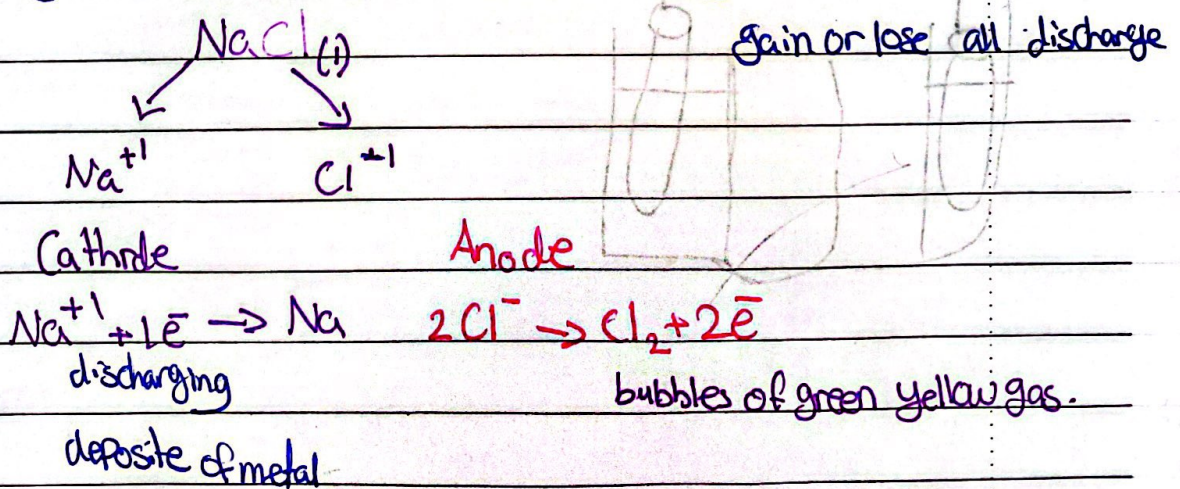 NaCl(l)
gain or lose all discharge
Na⁺¹ Cl⁻¹
Cathode Anode
Na⁺¹ + 1e⁻ → Na 2Cl⁻ → Cl₂ + 2e⁻
discharging
bubbles of green yellow gas.
deposite of metal